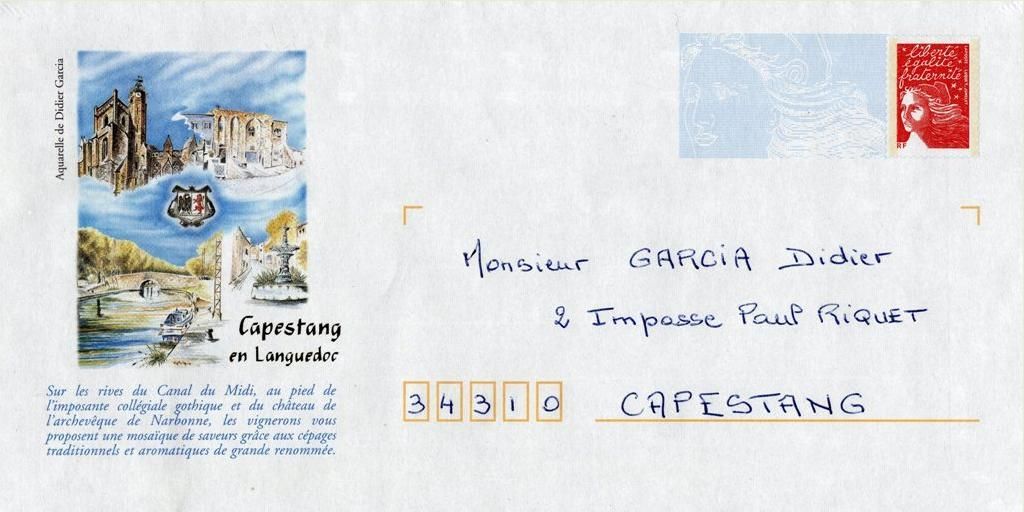 Aquarelle de Didier Garcia
Capestang
en Languedoc
Sur les rives du Canal du Midi, au pied de
l'imposante collégiale gothique et du château de
l'archevêque de Narbonne, les vignerons vous
proposent une mosaïque de saveurs grâce aux cépages
traditionnels et aromatiques de grande renommée.
liberté
égalité
fraternité
RF
Monsieur GARCIA Didier
2 Impasse Paul RIQUET
34310 CAPESTANG